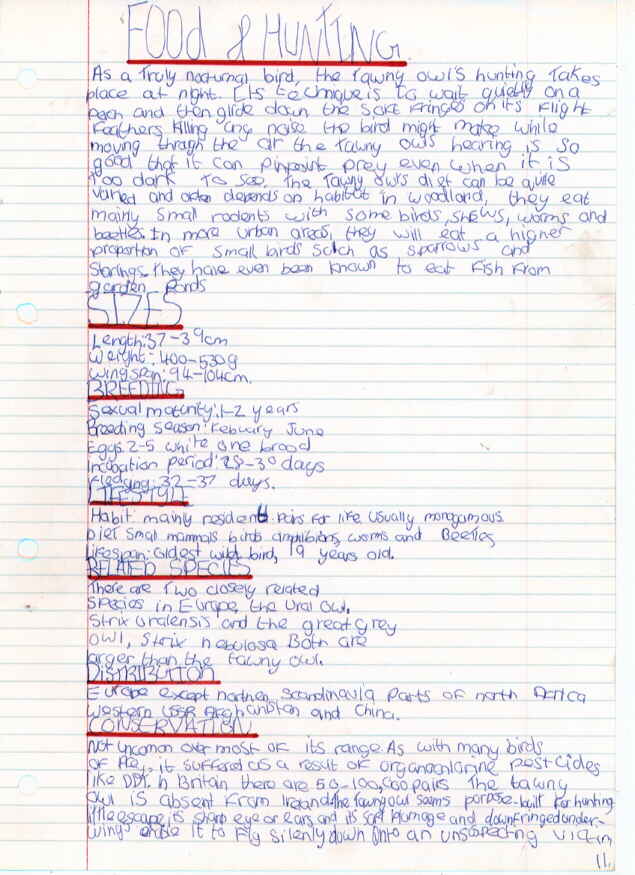 FOOD & HUNTING
As a Truly nocturnal bird, the Tawny owl's hunting Takes
place at night. Its technique is to wait quietly on a
peach and then glide down the soft fringes on its flight
feathers killing any noise the bird might make while
moving through the air the Tawny owls hearing is so
good that it can pinpoint prey even when it is
Too dark To see, The Tawny owl's diet can be quite
varied and often depends on habitat in woodland, they eat
mainly small rodents with some birds, shews, worms and
beetles. In more urban areas, they will eat a higher
proportion of small birds such as sparrows and
Starings. They have even been known to eat fish from
garden Ponds
SIZES
Length: 37-39cm
Weight: 400-530g
wingspan: 94-104cm.
BREEDING
Sexual maturity: 1-2 years
Breeding season: Febuary June
Eggs: 2-5 white one brood
Incubation period: 28-30 days
Fledging: 32-37 days.
LIFESTYLE
Habit: mainly resident. Pairs for life usually monogamous
Diet small mammals birds amphibions worms and Beetles
Lifespan: oldest wild bird, 19 years old.
RELATED SPECIES
There are Two closely related
species in Europe, the Ural owl.
Strix uralensis and the great Grey
owl, Strix nebulosa Both are
larger than the tawny owl.
DISTRIBUTION
Europe except northen Scandinavia Parts of north Africa
western USSR Afghanistan and China.
CONSERVATION
Not uncomon over most of its range. As with many birds
of Prey, it suffered as a result of organochlorine pesticides
like DDT. In Britain there are 50-100,000 pairs The tawny
owl is absent from Ireland. The tawny owl seems porpose-built for hunting
little escape its sharp eye or ears and its soft plumage and downfringed under-
wings enable it to fly silently down onto an unsuspecting victim
11.